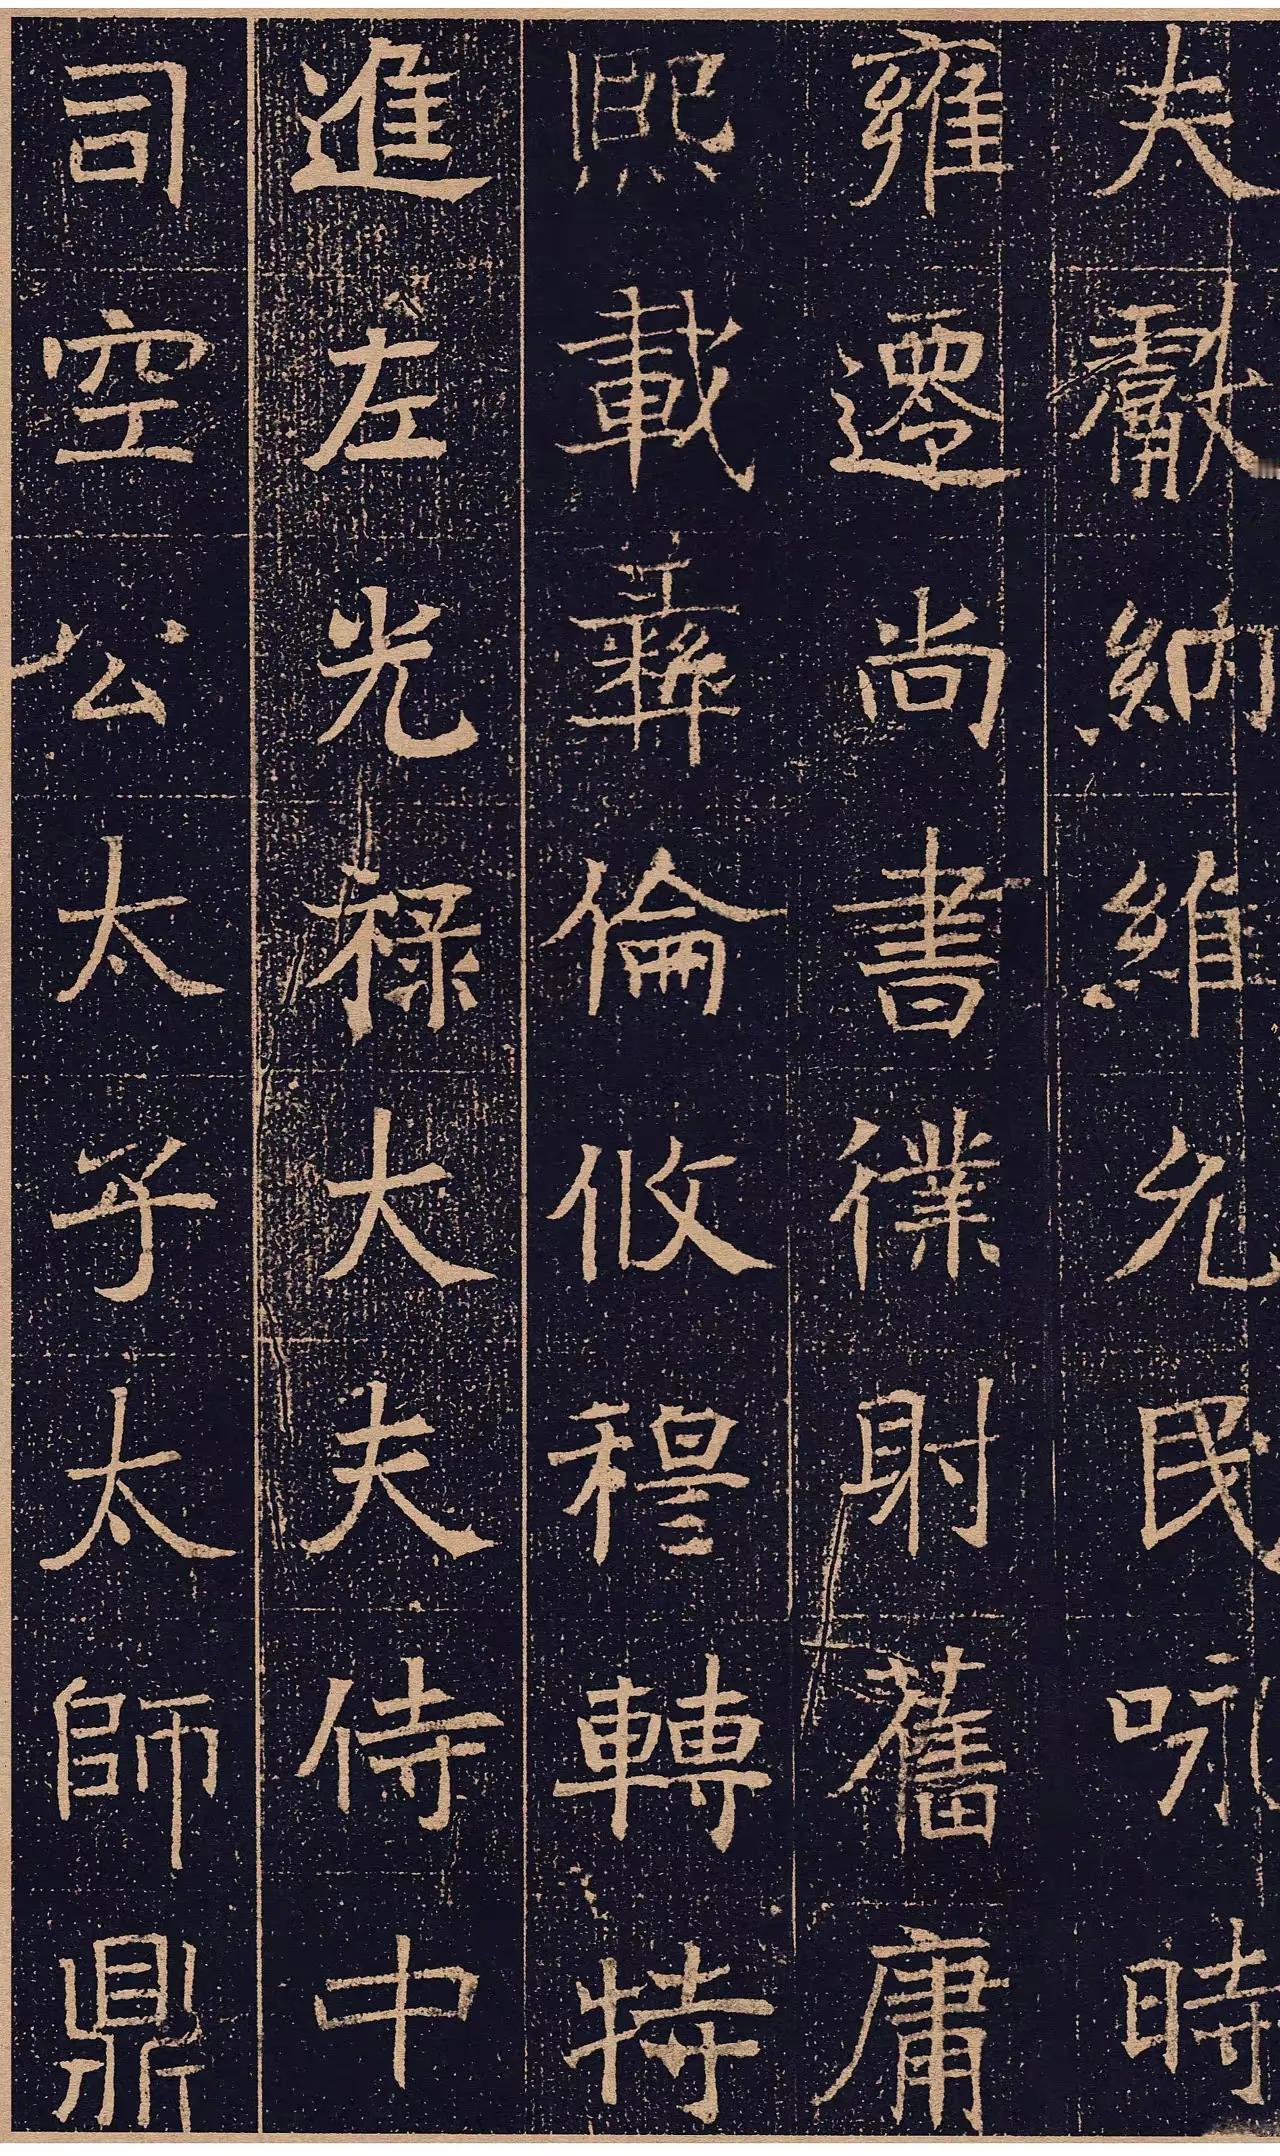 夫獻納維允民咏時
雍遷尚書僕射舊庸
熙載彝倫攸穆轉特
進左光祿大夫侍中
司空公太子太師鼎